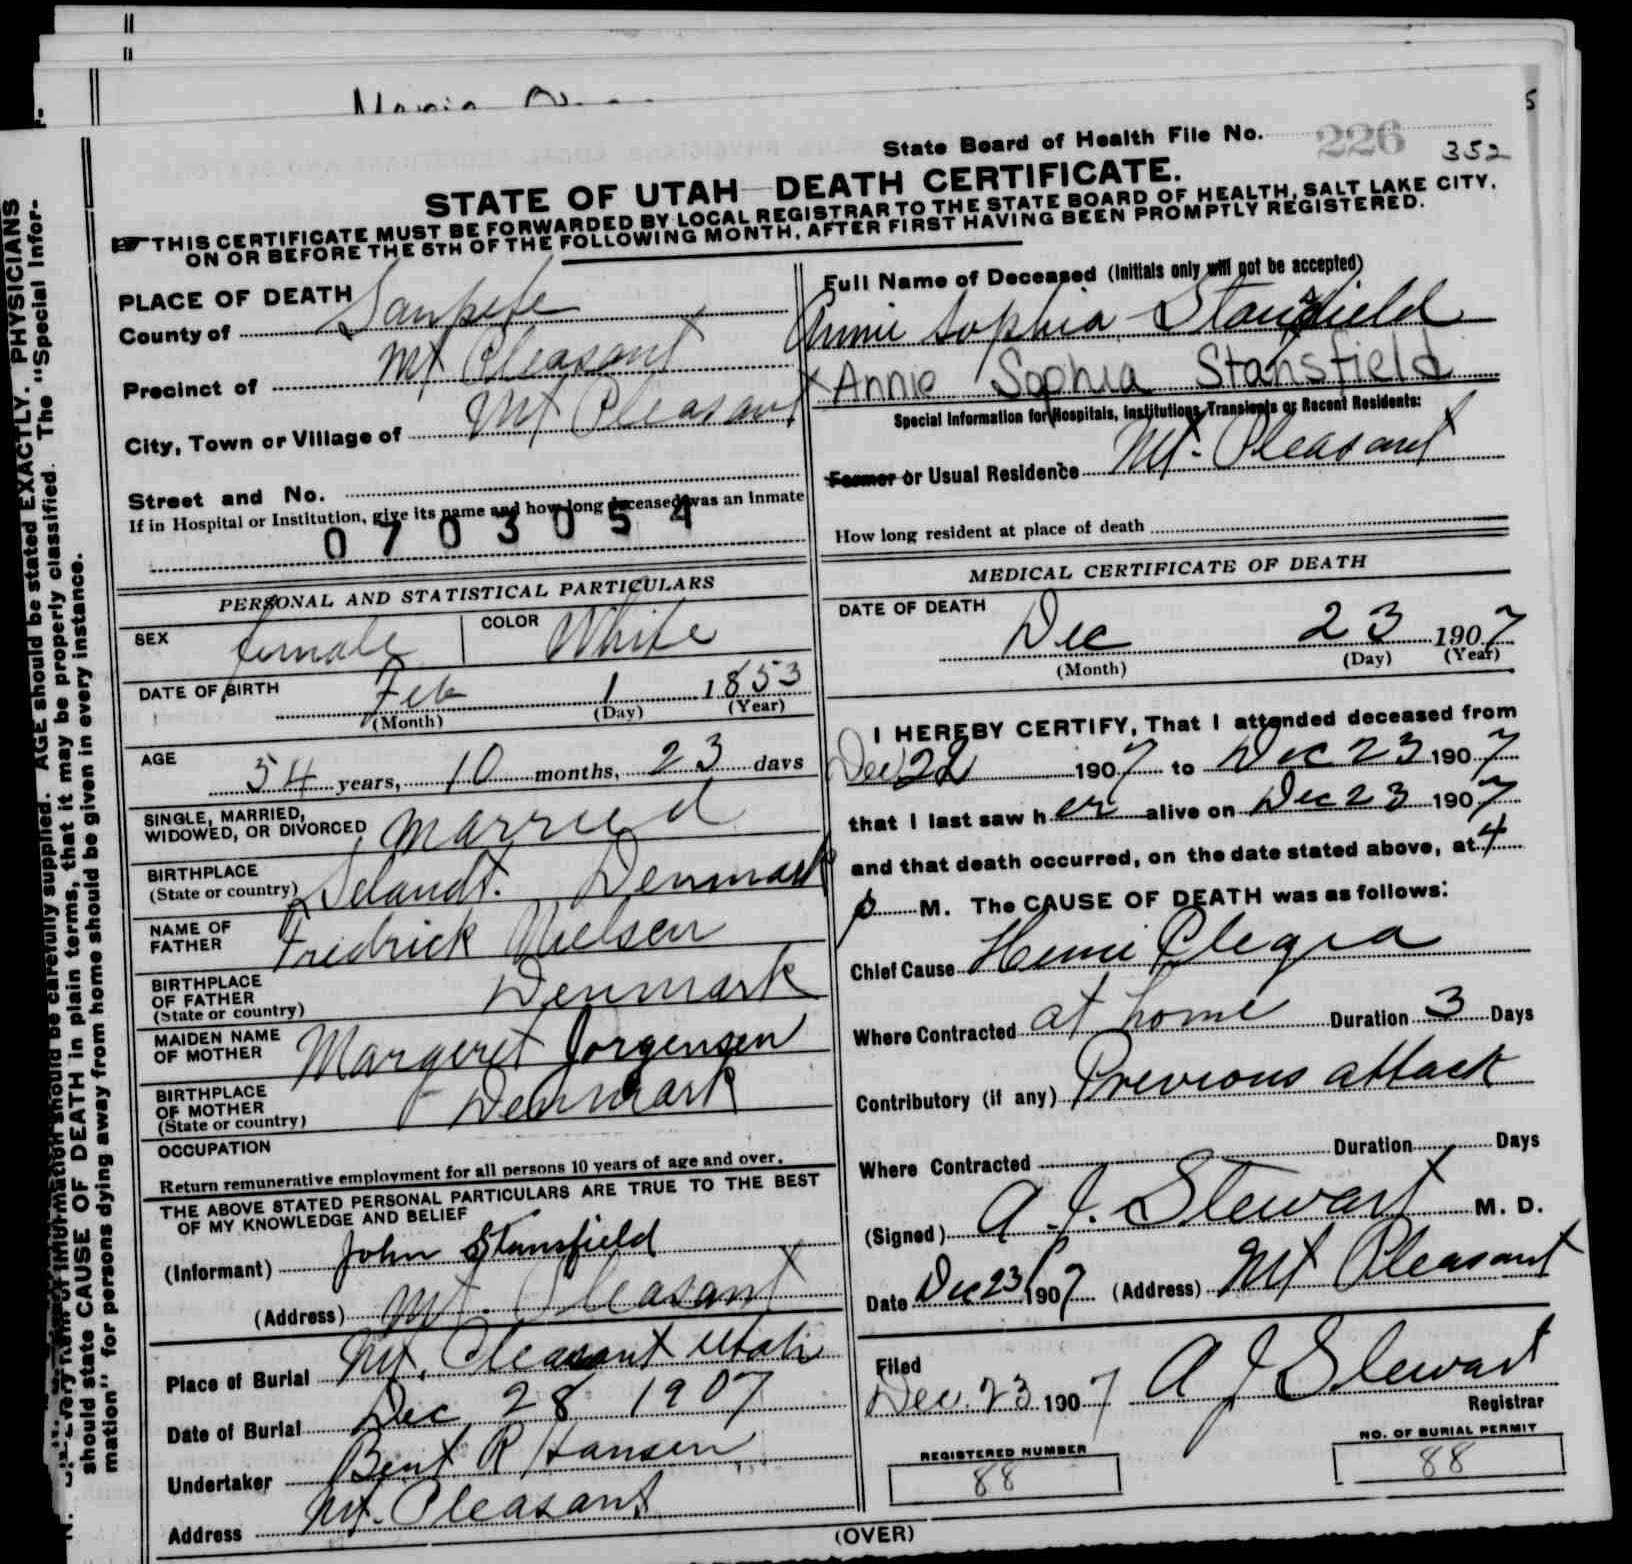 State Board of Health File No. 226 352
STATE OF UTAH—DEATH CERTIFICATE.
☞ THIS CERTIFICATE MUST BE FORWARDED BY LOCAL REGISTRAR TO THE STATE BOARD OF HEALTH, SALT LAKE CITY,
ON OR BEFORE THE 5TH OF THE FOLLOWING MONTH, AFTER FIRST HAVING BEEN PROMPTLY REGISTERED.
PLACE OF DEATH
County of Sanpete
Precinct of Mt Pleasant
City, Town or Village of Mt Pleasant
Street and No.
If in Hospital or Institution, give its name and how long deceased was an inmate
0703054
PERSONAL AND STATISTICAL PARTICULARS
SEX female COLOR White
DATE OF BIRTH Feb 1 1853
(Month) (Day) (Year)
AGE 54 years, 10 months, 23 days
SINGLE, MARRIED,
WIDOWED, OR DIVORCED Married
BIRTHPLACE
(State or country) Selandt. Denmark
NAME OF
FATHER Fredrick Nielsen
BIRTHPLACE
OF FATHER
(State or country) Denmark
MAIDEN NAME
OF MOTHER Margeret Jorgensen
BIRTHPLACE
OF MOTHER
(State or country) Denmark
OCCUPATION
Return remunerative employment for all persons 10 years of age and over.
THE ABOVE STATED PERSONAL PARTICULARS ARE TRUE TO THE BEST
OF MY KNOWLEDGE AND BELIEF
(Informant) John Stansfield
(Address) Mt. Pleasant
Place of Burial Mt. Pleasant Utah
Date of Burial Dec 28 1907
Undertaker Bent R Hansen
Address Mt. Pleasant
Full Name of Deceased (Initials only will not be accepted)
Annie Sophia Stansfield
x Annie Sophia Stansfield
Special Information for Hospitals, Institutions, Transients or Recent Residents:
Former or Usual Residence Mt. Pleasant
How long resident at place of death
MEDICAL CERTIFICATE OF DEATH
DATE OF DEATH
Dec 23 1907
(Month) (Day) (Year)
I HEREBY CERTIFY, That I attended deceased from
Dec 22 1907 to Dec 23 1907
that I last saw her alive on Dec 23 1907
and that death occurred, on the date stated above, at 4
p M. The CAUSE OF DEATH was as follows:
Chief Cause Hemi Plegia
Where Contracted at home Duration 3 Days
Contributory (if any) Previous attack
Where Contracted Duration Days
(Signed) A. J. Stewart M. D.
Date Dec 23 1907 (Address) Mt Pleasant
Filed
Dec. 23 1907 A J Stewart
Registrar
REGISTERED NUMBER
88
NO. OF BURIAL PERMIT
88
(OVER)
should state CAUSE OF DEATH in plain terms, that it may be properly classified. The "Special Infor-
mation" for persons dying away from home should be given in every instance.